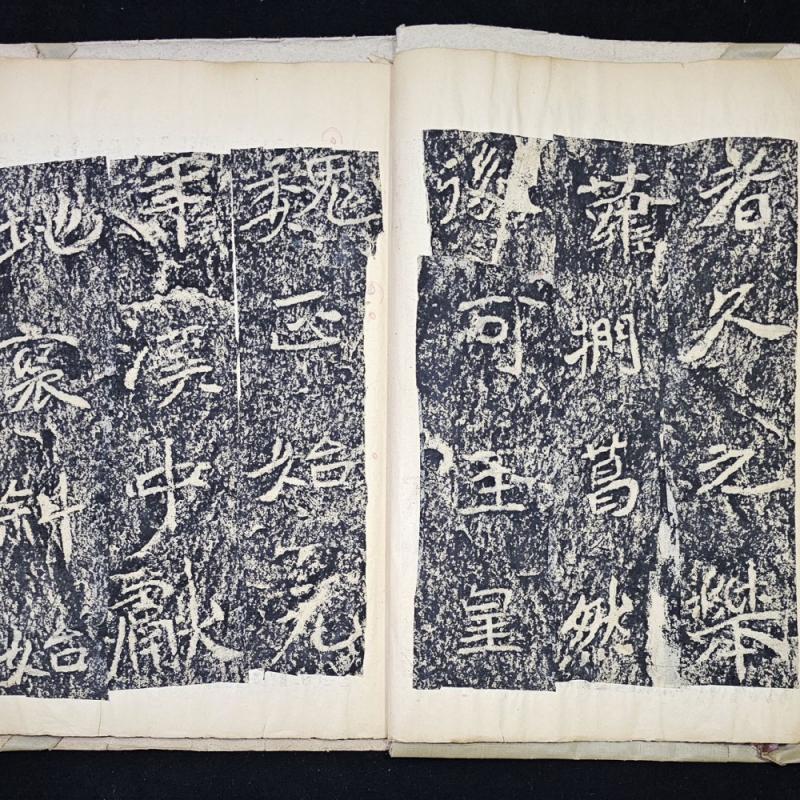 者久之攀
蘿捫葛然
後可至皇
魏正始元
年漢中獻
地褒斜始